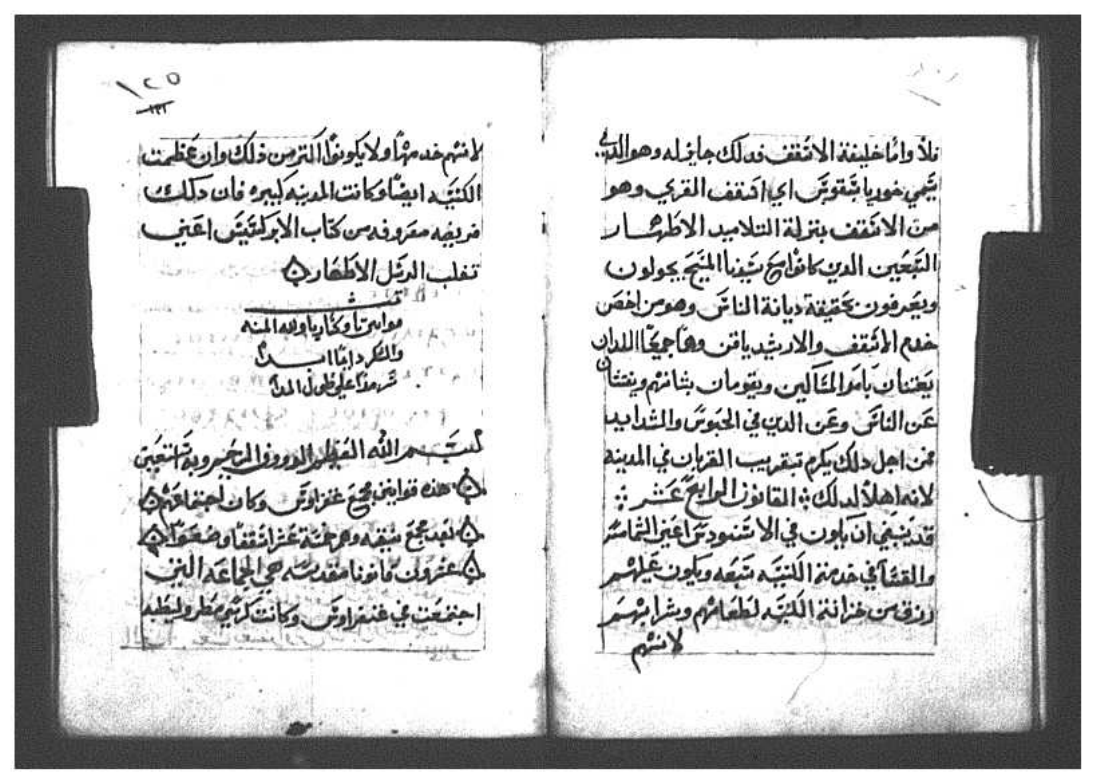 فلا واما خليفة الاسقف فدلك جايز له وهو الدي
يسمي خوريا بسقوس اي اسقف القري وهو
من الاسقف بمنزلة التلاميد الاطهار
السبعين الدين كانوا مع سيدنا المسيح يجولون
ويعرفون بحقيقة ديانة الناس وهو من اخص
خدم الاسقف والارشيدياقن وهما جميعا اللدان
يعتنان بامر المساكين ويقومان بشانهم ويفتشان
عن الناس وعن الدين في الحبوس والشدايد
فمن اجل دلك يكرم بتقريب القربان في المدينه
لانه اهلا لدلك القانون الرابع عشر
قد ينبغي ان يكون في الاسنودس اعني الشمامسه
والقسا في خدمة الكنيسه سبعه ويكون عليهم
رزق من خزانة الكنيسه لطعامهم وشرابهم
لانهم
١٢٥
١٣١
لانهم خدمها ولا يكونوا اكتر من ذلك وان عظمت
الكنيسه ايضا وكانت المدينه كبيره فان دلك
فريضه معروفه من كتاب الابركسيس اعني
الرسل الاطهار
تمت
قوانين ولله المنه
والشكر دايما ابدا
سرمدا علي طول المدا
بسم الله العظيم الرووف الرحيم وبه نستعين
هذه قوانين مجمع غنغراوس وكان اجتماعهم
بعد مجمع نيقيه وهم خمسة عشر اسقفا وضعوا
عشرون قانونا مقدسه هي الجماعه التي
اجتمعت في غنغراوس وكانت كرسي مطروليطيه